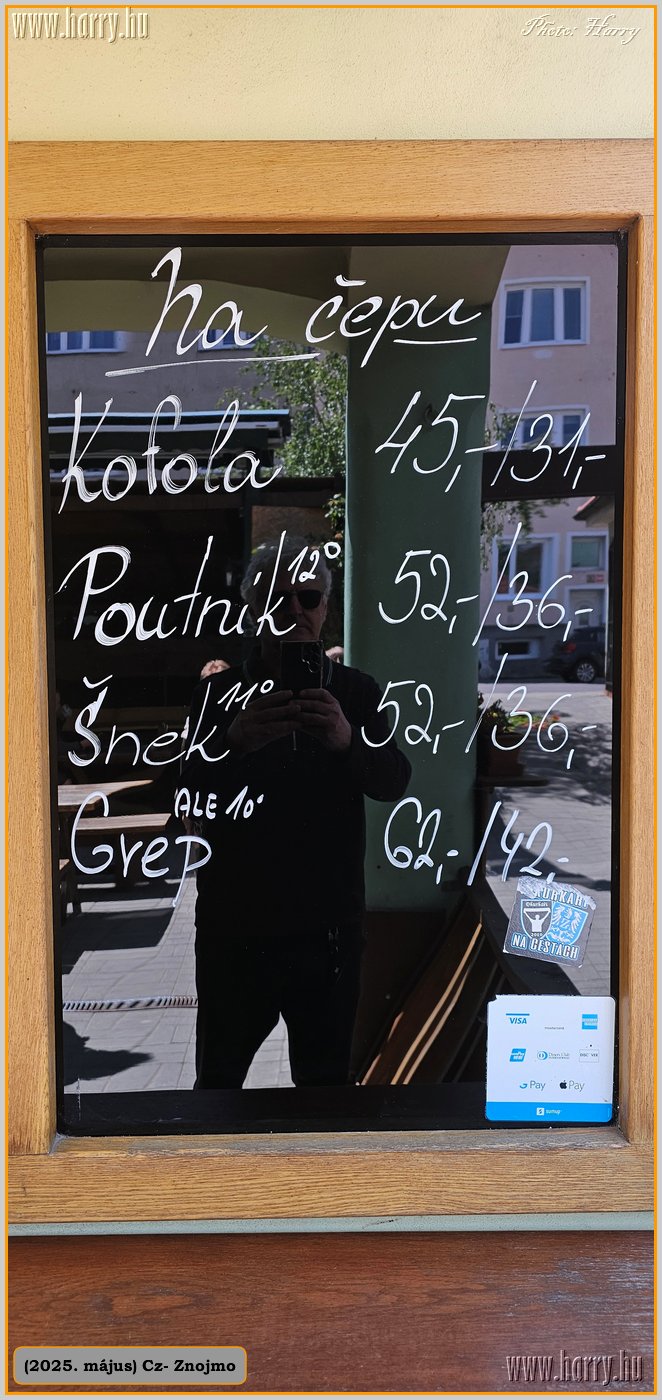 www.harry.hu
Photo: Harry
Na čepu
Kofola 45,-/31,-
Poutník 12° 52,-/36,-
Šnek 11° 52,-/36,-
Grep ALE 10° 62,-/42,-
NA CESTÁCH
VISA
Diners Club
DISCOVER
G Pay
Pay
sumup
(2025. május) Cz- Znojmo
www.harry.hu